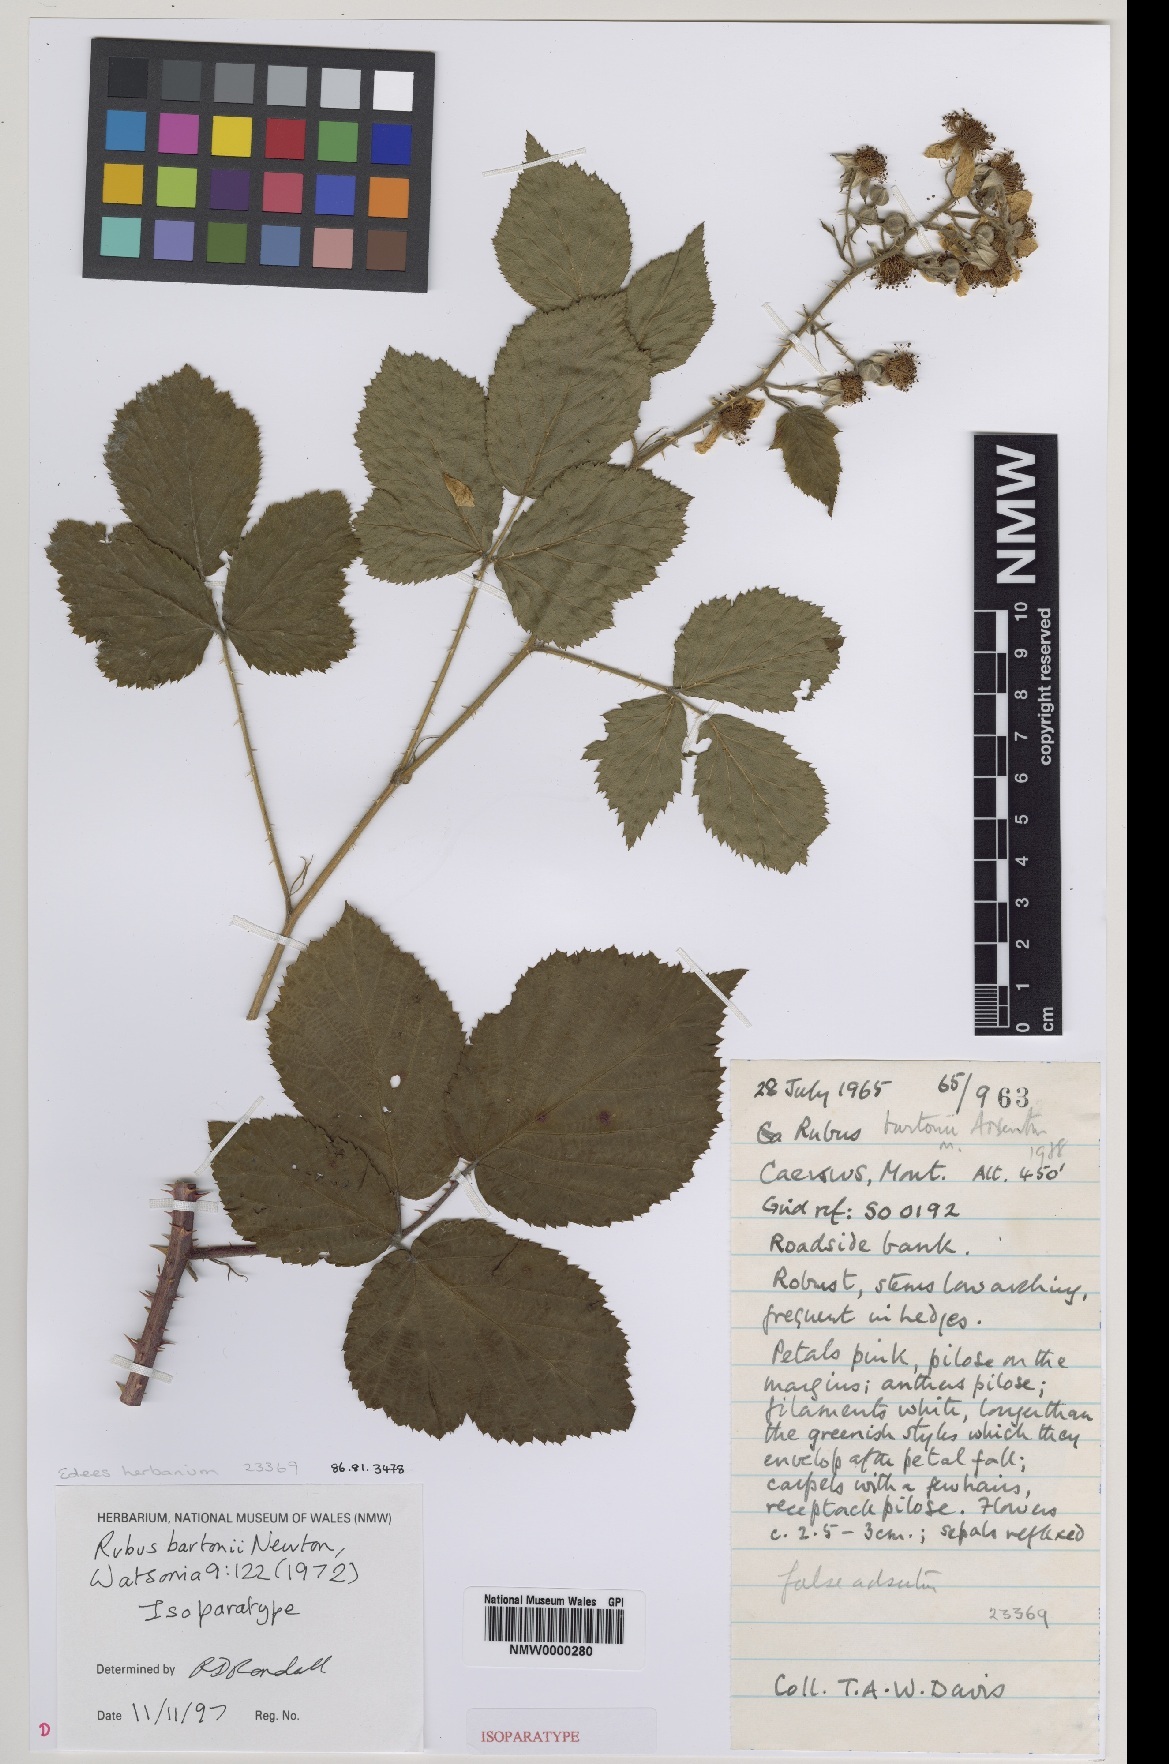 NMW
10
9
8
7
6
5
4
3
2
1
0
cm
copyright reserved
28 July 1965 65/963
Rubus bartonii
1988
Caersws, Mont. Alt. 450'
Grid ref: SO 0192
Roadside bank.
Robust, stems low arching,
frequent in hedges.
Petals pink, pilose on the
margins; anthers pilose;
filaments white, longer than
the greenish styles which they
envelop after petal fall;
carpels with a few hairs,
receptacle pilose. Flowers
c. 2.5 - 3cm.; sepals reflexed
false
23369
Coll. T.A.W. Davis
Edees herbarium 23369 86.81.3478
HERBARIUM, NATIONAL MUSEUM OF WALES (NMW)
Rubus bartonii Newton,
Watsonia 9:122 (1972)
Isoparatype
Determined by RDRandall
Date 11/11/97 Reg. No.
D
National Museum Wales GPI
NMW0000280
ISOPARATYPE